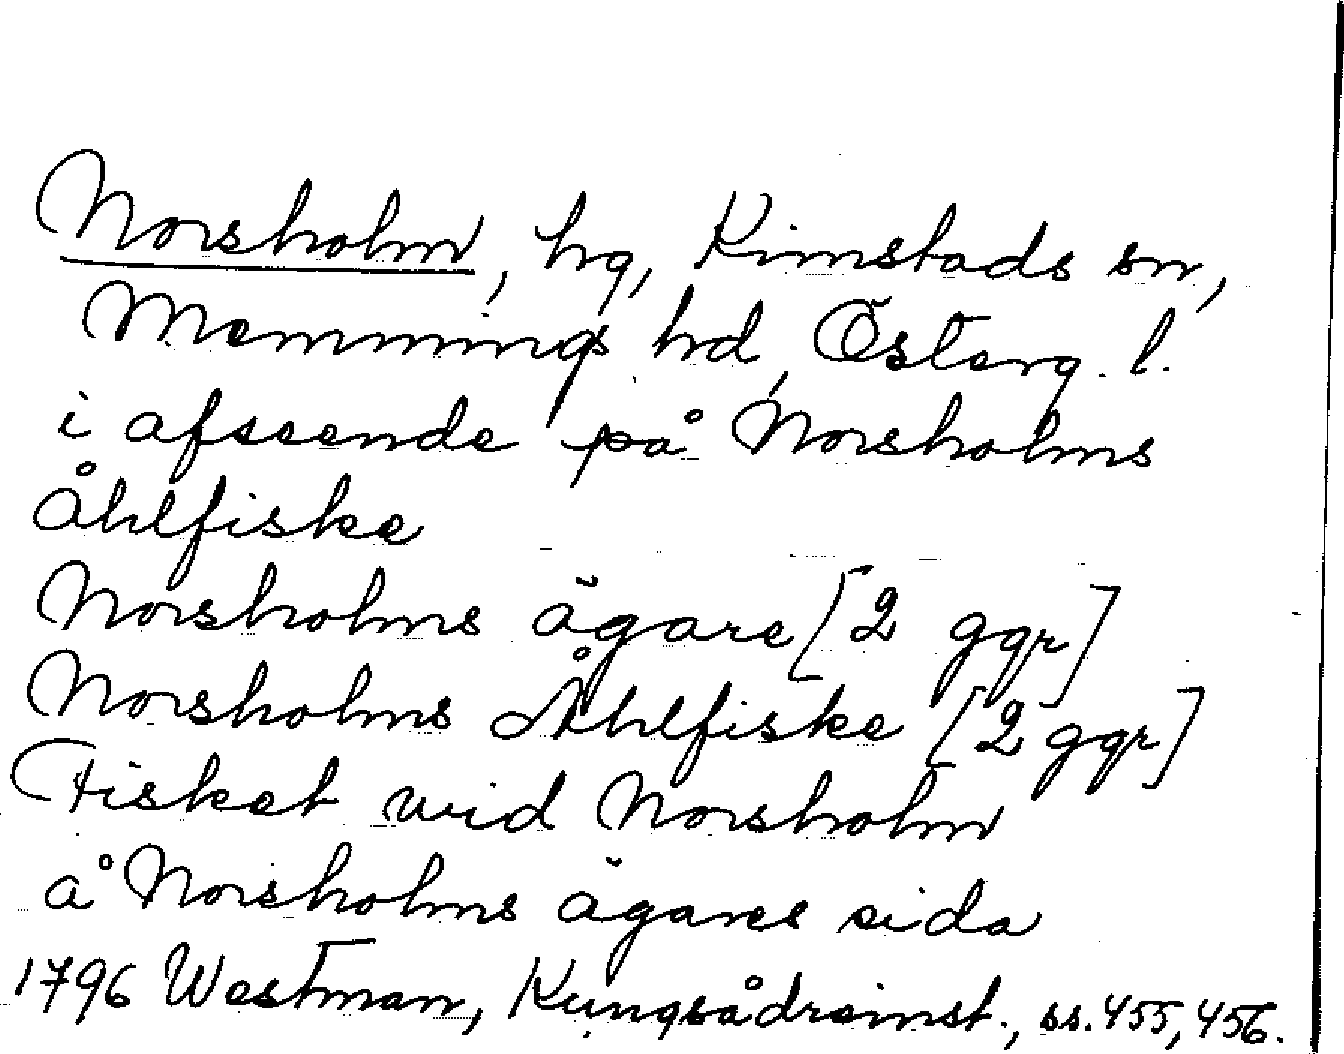 Norsholm, hg, Kimstads sn,
Memmings hd, Österg. l.
i afseende på Norsholms
Åhlfiske
Norsholms ägare [2 ggr]
Norsholms Åhlfiske [2 ggr]
Fisket wid Norsholm
å Norsholms ägares sida
1796 Westman, Kungsådreinst., ss. 455, 456.